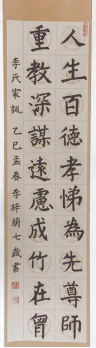 人生百徳孝悌為先尊師
重教深謀遠慮成竹在胷
李氏家訓 乙巳孟春 李梓蘭七歲書